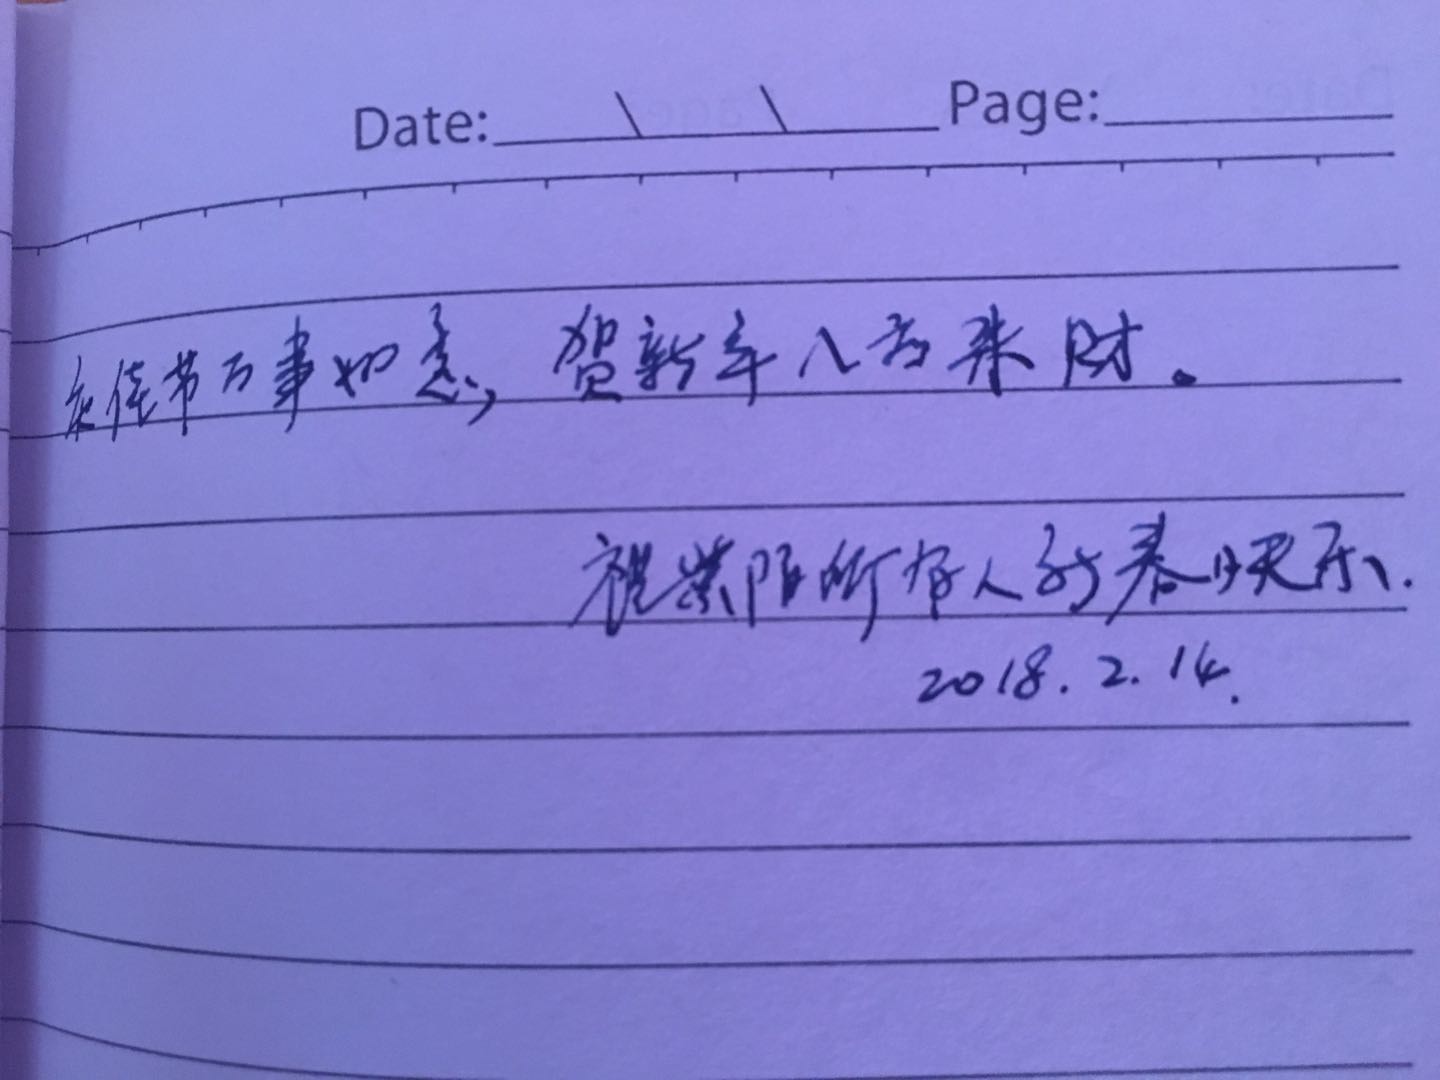 Date: \ \ Page:
庆佳节万事如意，贺新年八方来财。
祝紫陌所有人的春快乐.
2018.2.14.